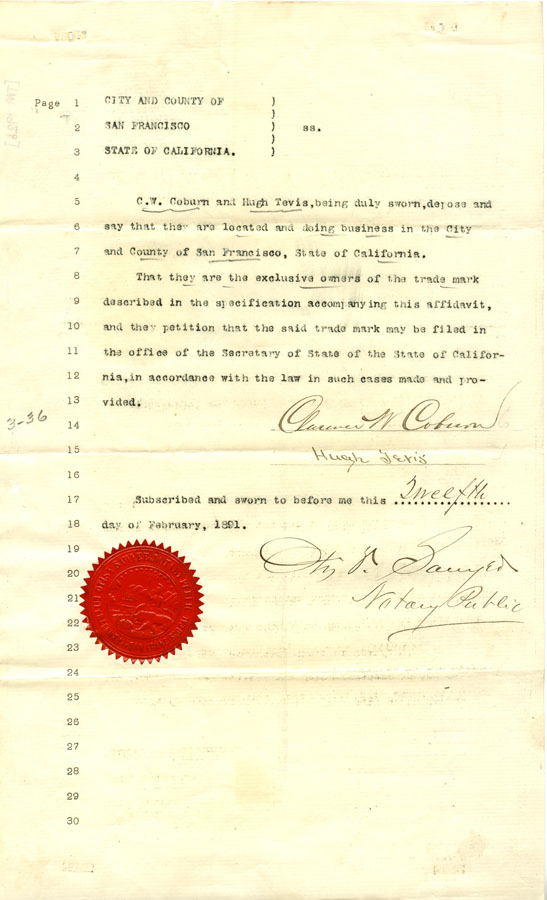 Page 1 CITY AND COUNTY OF )
)
2 SAN FRANCISCO ) ss.
)
3 STATE OF CALIFORNIA. )
4
5 C.W. Coburn and Hugh Tevis,being duly sworn,depose and
6 say that they are located and doing business in the City
7 and County of San Francisco, State of California.
8 That they are the exclusive owners of the trade mark
9 described in the specification accompanying this affidavit,
10 and they petition that the said trade mark may be filed in
11 the office of the Secretary of State of the State of Califor-
12 nia,in accordance with the law in such cases made and pro-
13 vided.
3-36
14 Clarence W Coburn
15 Hugh Tevis
16
17 Subscribed and sworn to before me this Twelfth
18 day of February, 1891.
19
20
21 Notary Public
22
23
24
25
26
27
28
29
30